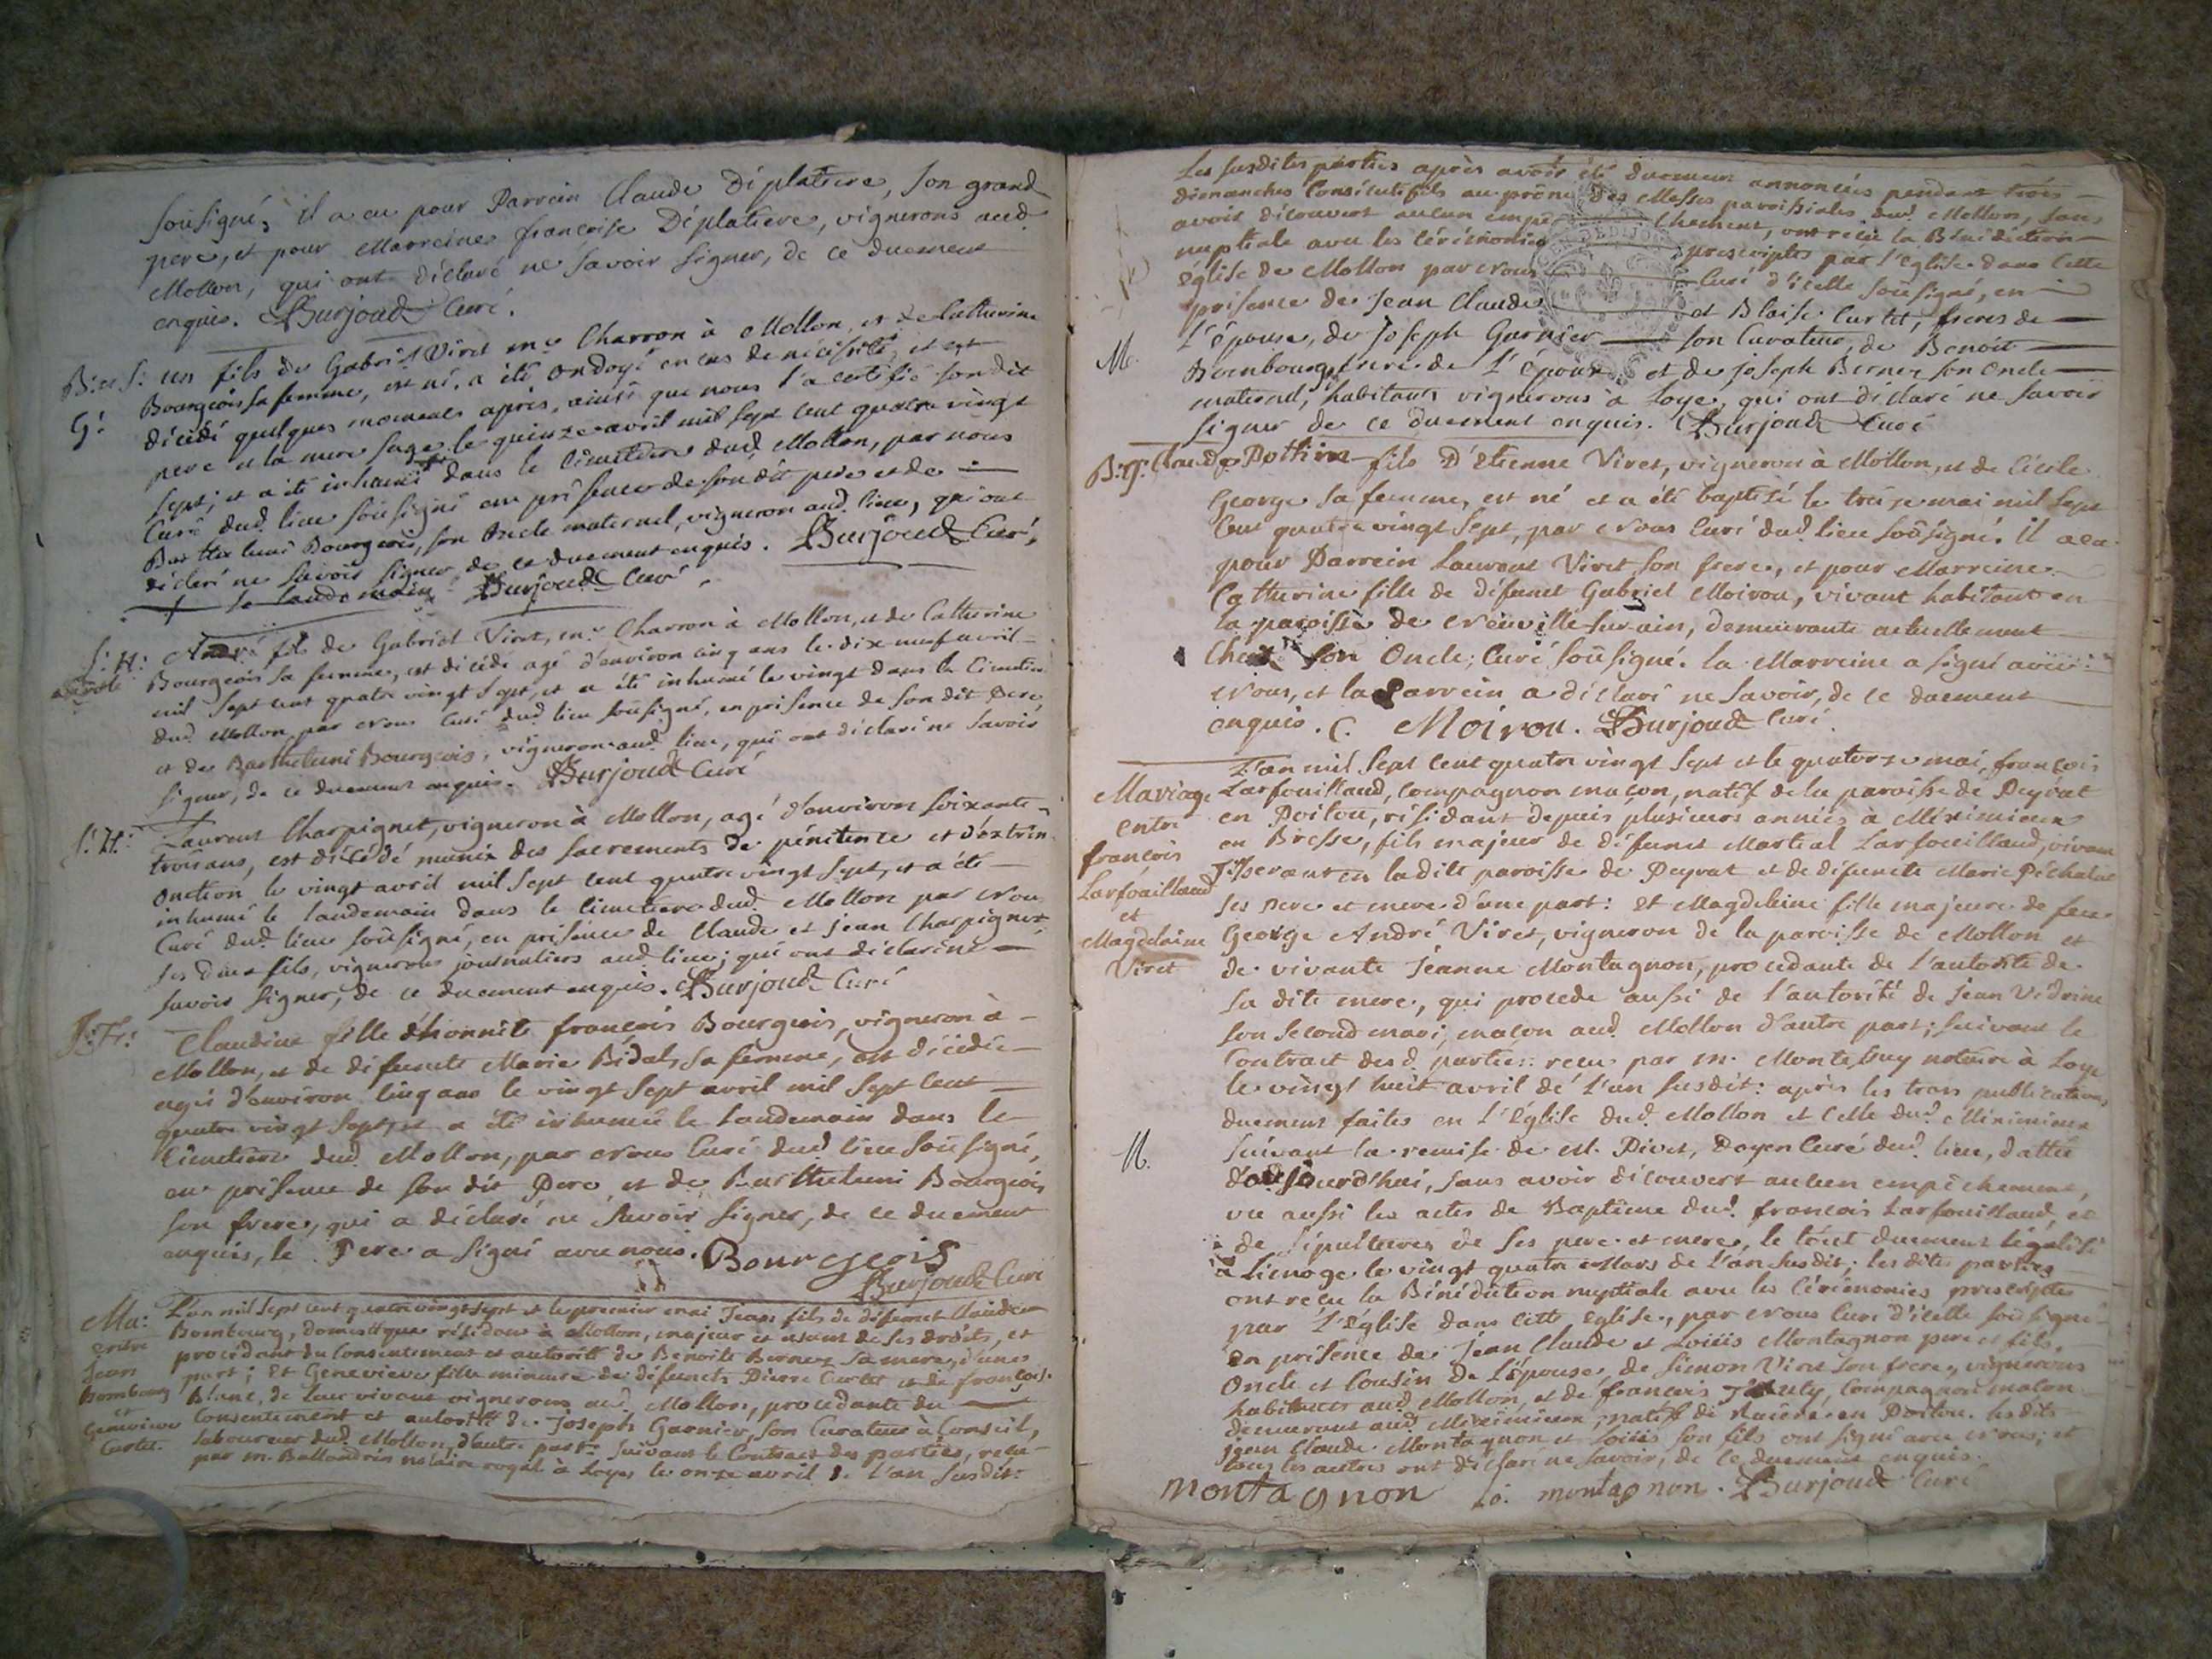 soûsigné, il a eu pour Parrein Claude Déplatiere, son grand
pere, et pour Marreine françoise Déplatiere, vignerons aud.
Mollon, qui ont déclaré ne savoir signer, de ce duement
enquis. Burjoud Curé.
B: et S: un fils de Gabriel Viret me. Charron à Mollon, et de Catherine
G: Bourgeois sa femme, est né, a été ondoyé en cas de nécéssité, et est
décédé quelques momens après, ainsi que nous l'a certifié son dit
pere et la mere sage le quinze avril mil sept cent quatre vingt
sept; et a été inhumé + dans le Cimetiere dud. Mollon, par nous
Curé dud. lieu soûsigné en présence de son dit pere et de
Barthelemi Bourgeois, son Oncle maternel, vigneron aud. lieu, qui ont
déclaré ne savoir signer, de ce duement enquis. Burjoud Curé.
+ le landemain Burjoud Curé.
S: H: André fils de Gabriel Viret, me. Charron à Mollon, et de Catherine
Bourgeois sa femme, est décédé agé d'environ cinq ans le dix neuf avril
mil sept cent quatre vingt sept, et a été inhumé le vingt dans le Cimetiere
dud. Mollon par Nous Curé dud. lieu soûsigné, en présence de son dit Pere,
et de Barthelemi Bourgeois, vigneron aud. lieu, qui ont déclaré ne savoir
signer, de ce duement enquis. Burjoud Curé
S: H: Laurent Charpignet, vigneron à Mollon, agé d'environ soixante
trois ans, est décédé muni des sacrements de pénitence et d'extrin
onction le vingt avril mil sept cent quatre vingt sept, et a été
inhumé le landemain dans le Cimetiere dud. Mollon par Nous
Curé dud. lieu soûsigné, en présence de Claude et Jean Charpignet
ses deux fils, vignerons journaliers aud. lieu; qui ont déclaré ne
savoir signer, de ce duement enquis. Burjoud Curé
Claudine fille d'honnête françois Bourgeois, vigneron à
Mollon, et de défuncte Marie Bidal, sa femme, est décédée
agée d'environ cinq ans le vingt sept avril mil sept cent
quatre vingt sept, et a été inhumée le landemain dans le
Cimetiere dud. Mollon, par Nous Curé dud. lieu soûsigné,
en présence de son dit Pere, et de Barthelemi Bourgeois
son frere, qui a déclaré ne savoir signer, de ce duement
enquis, le Pere a signé avec nous. Bourgeois
Burjoud Curé
Ma: entre Jean Bombourg et Genevieve Curtet.
L'an mil sept cent quatre vingt sept et le premier mai Jean fils de défunct Claude
Bombourg, domestique résidant à Mollon, majeur et usant de ses droits, et
procédant du Consentement et autorité de Benoite Bernex sa mere, d'une
part; Et Genevieve fille mineure de défuncts Pierre Curtet et de françoise
Blanc, de leur vivant vignerons aud. Mollon, procédante du
Consentement et autorité de Joseph Garnier, son Curateur à Conseil,
laboureur dud. Mollon, d'autre part: suivant le Contract des parties, reçu
par m. Ballandrin notaire royal à Loyes le onze avril de l'an susdit:
Les susdites parties après avoir été duement annoncées pendant trois
dimanches Consécutifs au prône des Messes paroissiales dud. Mollon, sans
avoir découvert aucun empêchement, ont reçu la Bénédiction
nuptiale avec les cérémonies prescriptes par l'eglise dans cette
église de Mollon par Nous Curé d'icelle soûsigné, en
présence de Jean Claude et Blaise Curtet, freres de
l'épouse, de Joseph Garnier son Curateur, de Benoit
Bombourg frere de l'époux et de joseph Bernex son oncle
maternel, habitants vignerons à Loye, qui ont déclaré ne savoir
signer de ce duement enquis. Burjoud Curé
M.
B: G: Claude Pottin fils d'Etienne Viret, vigneron à Mollon, et de Cécile
George sa femme, est né et a été baptisé le treize mai mil sept
cent quatre vingt sept, par Nous Curé dud. lieu soûsigné. Il a eu
pour Parrein Laurent Viret son frere, et pour Marreine
Catherine fille de défunct Gabriel Moiron, vivant habitant en
la paroisse de Neuville sur ain, demeurante actuellement
Chez son Oncle, Curé soûsigné. la Marreine a signé avec
Nous, et le Parrein a déclaré ne savoir, de ce duement
enquis. C. Moiron. Burjoud Curé.
Mariage
entre
françois
Larfouillaud
et
Magdelaine
Viret
L'an mil sept cent quatre vingt sept et le quatorze mai, françois
Larfouillaud, compagnon maçon, natif de la paroisse de Peyrat
en Poitou, résidant depuis plusieurs années à Méximieux
en Bresse, fils majeur de défunct Martial Larfouillaud, vivant
Tisserant en ladite paroisse de Peyrat et de défuncte Marie Péchalat
ses pere et mere d'une part: Et Magdeleine fille majeure de feu
George André Viret, vigneron de la paroisse de Mollon et
de vivante Jeanne Montagnon, procedante de l'autorité de
sa dite mere, qui procede aussi de l'autorité de Jean Védrine
son second mari, maçon aud. Mollon d'autre part; suivant le
Contract desd. parties: reçu par m. Monteluy notaire à Loye
le vingt huit avril de l'an susdit: après les trois publications
duement faites en l'Église dud. Mollon et celle dud. Méximieux
suivant la remise de M. Pivet, Doyen Curé dud. lieu, dattée
d'aujourd'hui, sans avoir découvert aucun empêchement,
vu aussi les actes de Baptême dud. françois Larfouillaud, et
de sépultures de ses pere et mere, le tout duement légalisé
à Limoge le vingt quatre Mars de l'an susdit; les dites parties
ont reçu la Bénédiction nuptiale avec les cérémonies prescriptes
par l'Église dans cette Eglise, par Nous Curé d'icelle soûsigné
en présence de Jean Claude et Loüis Montagnon pere et fils,
Oncle et Cousin de l'épouse, de Simon Viret son frere, vignerons
habitants aud. Mollon, et de françois Compagnon maçon
demeurant aud. Méximieux, natif de en Poitou. lesdits
jean Claude Montagnon et Loüis son fils ont signé avec Nous; et
tous les autres ont déclaré ne savoir, de ce duement enquis.
M.
montagnon Lo. montagnon. Burjoud Curé